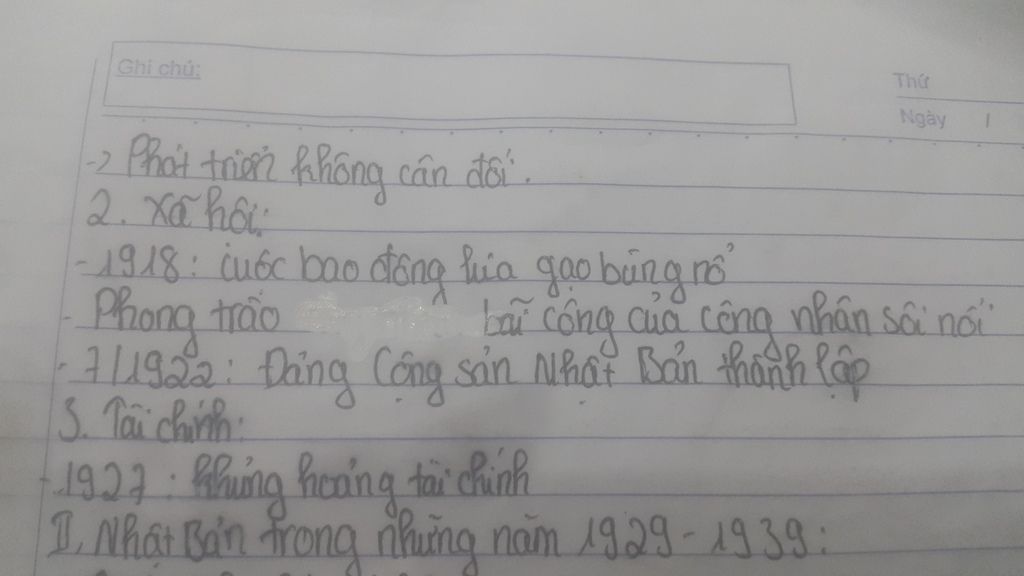 Ghi chú:
Thứ
Ngày /
-> Phát triển không cân đối.
2. Xã hội:
- 1918: cuộc bao động lúa gạo bùng nổ
- Phong trào bãi công của công nhân sôi nổi
- 7/1922: Đảng Cộng sản Nhật Bản thành lập
3. Tài chính:
- 1927: Khủng hoảng tài chính
II, Nhật Bản trong những năm 1929 - 1939: